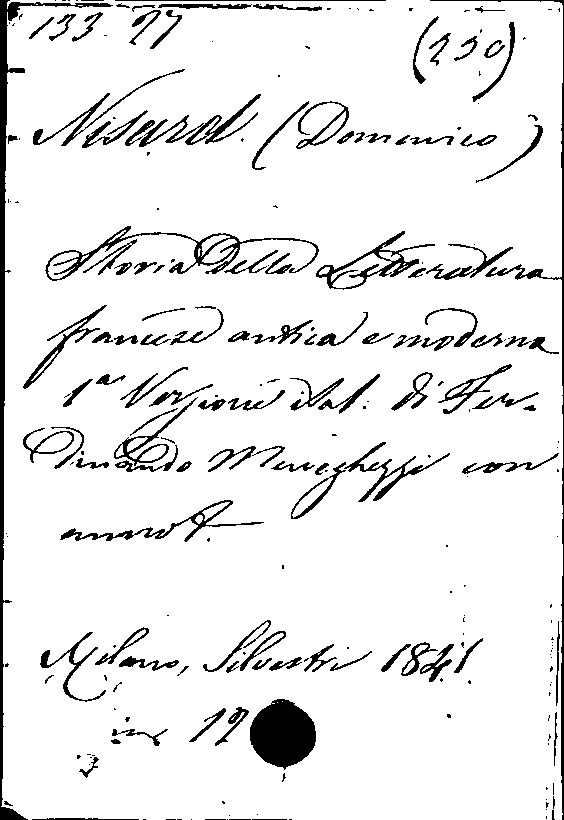 133. 27 (230)
Nisard. (Domenico)
Storia della Letteratura
francese antica e moderna
1ª Versione ital. di Fer-
dinando Meneghezzi con
annot.
Milano, Silvestri 1841.
in 12